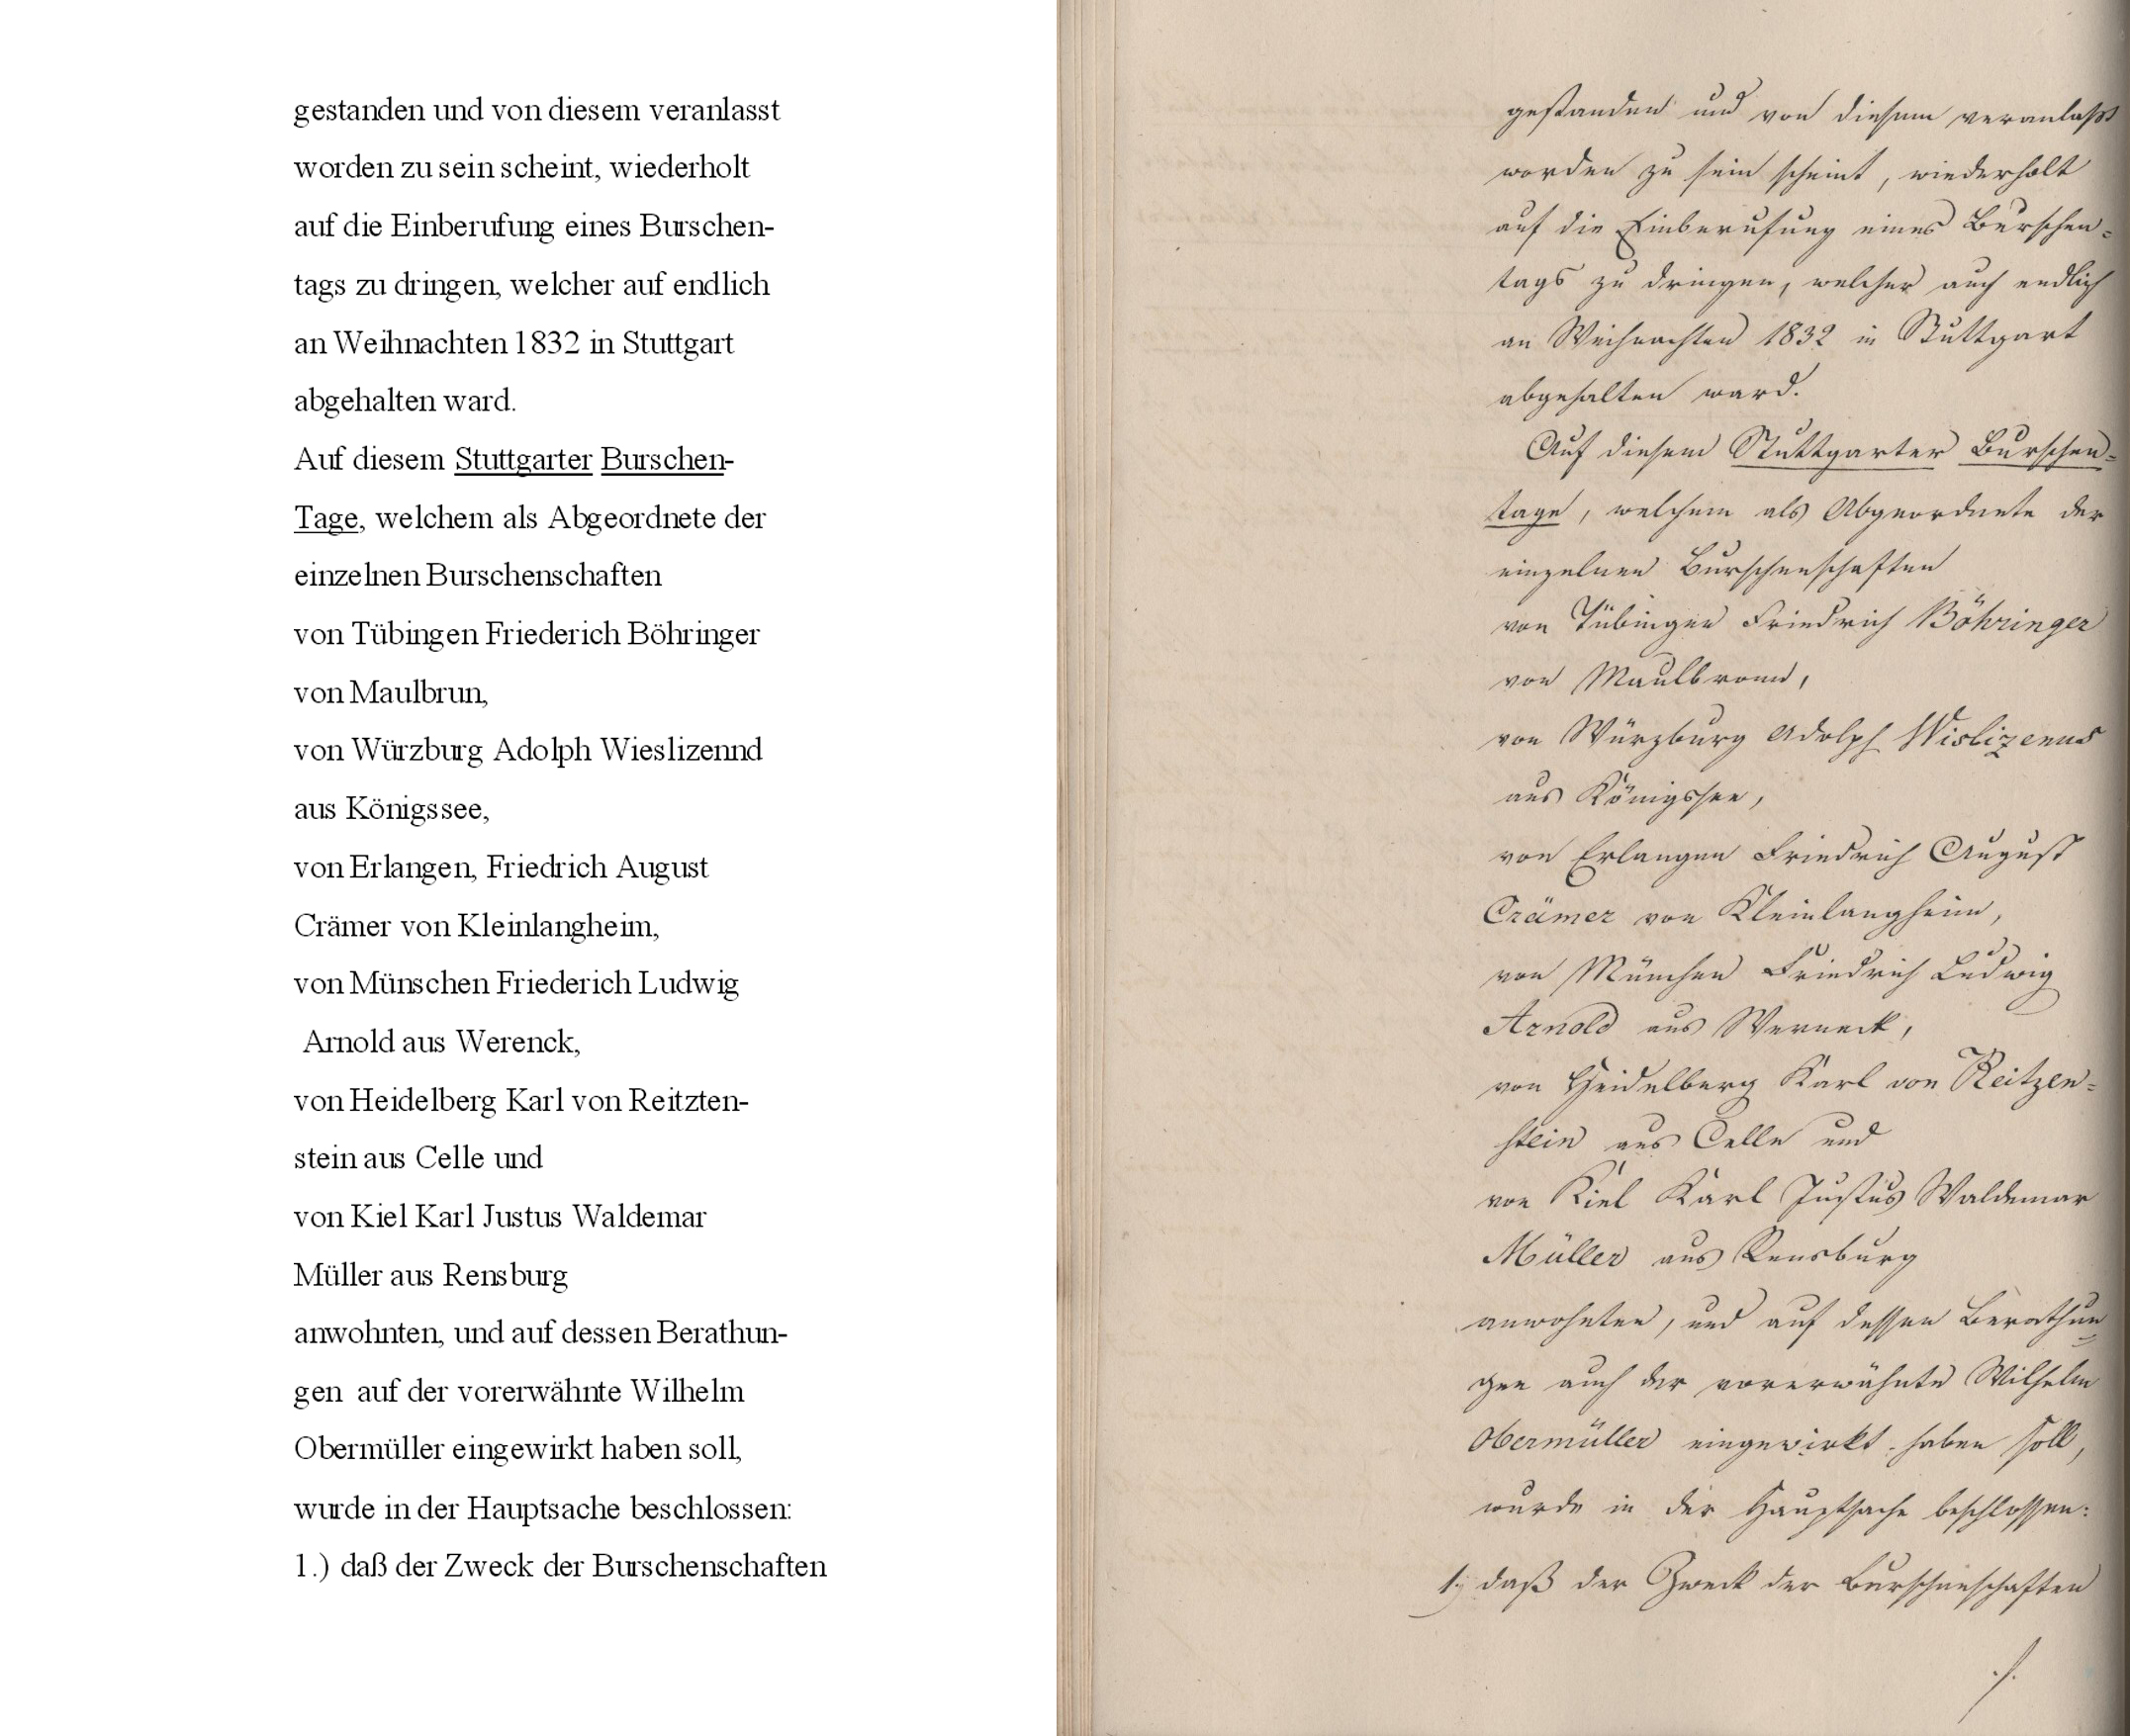 gestanden und von diesem veranlasst
worden zu sein scheint, wiederholt
auf die Einberufung eines Burschen-
tags zu dringen, welcher auf endlich
an Weihnachten 1832 in Stuttgart
abgehalten ward.
Auf diesem Stuttgarter Burschen-
Tage, welchem als Abgeordnete der
einzelnen Burschenschaften
von Tübingen Friederich Böhringer
von Maulbrun,
von Würzburg Adolph Wieslizennd
aus Königssee,
von Erlangen, Friedrich August
Crämer von Kleinlangheim,
von Münschen Friederich Ludwig
Arnold aus Werenck,
von Heidelberg Karl von Reitzten-
stein aus Celle und
von Kiel Karl Justus Waldemar
Müller aus Rensburg
anwohnten, und auf dessen Berathun-
gen auf der vorerwähnte Wilhelm
Obermüller eingewirkt haben soll,
wurde in der Hauptsache beschlossen:
1.) daß der Zweck der Burschenschaften
gestanden und von diesem veranlaßt
worden zu sein scheint, wiederholt
auf die Einberufung eines Burschen-
tags zu dringen, welcher auch endlich
an Weihnachten 1832 in Stuttgart
abgehalten ward.
Auf diesem Stuttgarter Burschen-
tage, welchem als Abgeordnete der
einzelnen Burschenschaften
von Tübingen Friedrich Böhringer
von Maulbronn,
von Würzburg Adolph Wislizenus
aus Königssee,
von Erlangen Friedrich August
Crämer von Kleinlangheim,
von München Friedrich Ludwig
Arnold aus Werneck,
von Heidelberg Karl von Reitzen-
stein aus Celle und
von Kiel Karl Justus Waldemar
Müller aus Rensburg
anwohnten, und auf dessen Berathun=
gen auch der vorerwähnte Wilhelm
Obermüller eingewirkt haben soll,
wurde in der Hauptsache beschlossen:
1.) daß der Zweck der Burschenschaften
./.